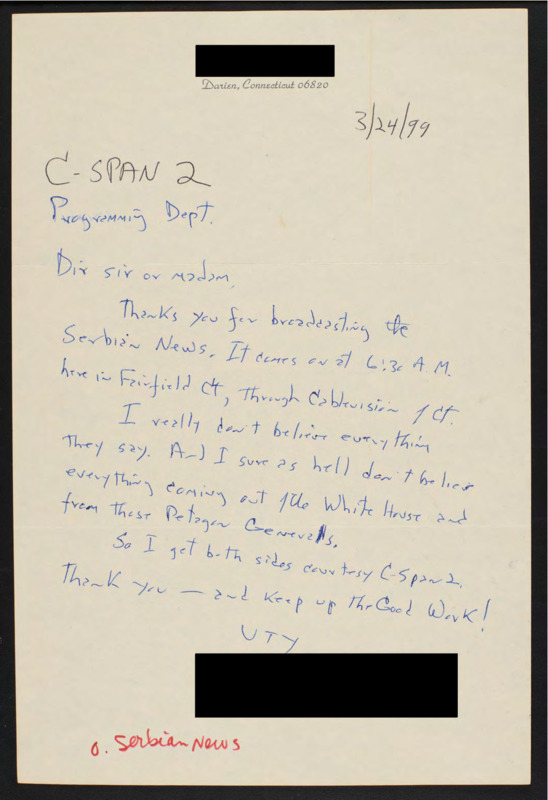 Darien, Connecticut 06820
3/24/99
C-SPAN 2
Programming Dept.
Dir sir or madam,
Thanks you for broadcasting the
Serbian News. It comes on at 6:30 A.M.
here in Fairfield Ct, through Cablevision of Ct.
I really don't believe everything
they say. And I sure as hell don't believe
everything coming out of the White House and
from those Petagon Generals.
So I get both sides courtesy C-Span 2.
Thank you — and keep up the Good Work!
VTY
o. Serbian News